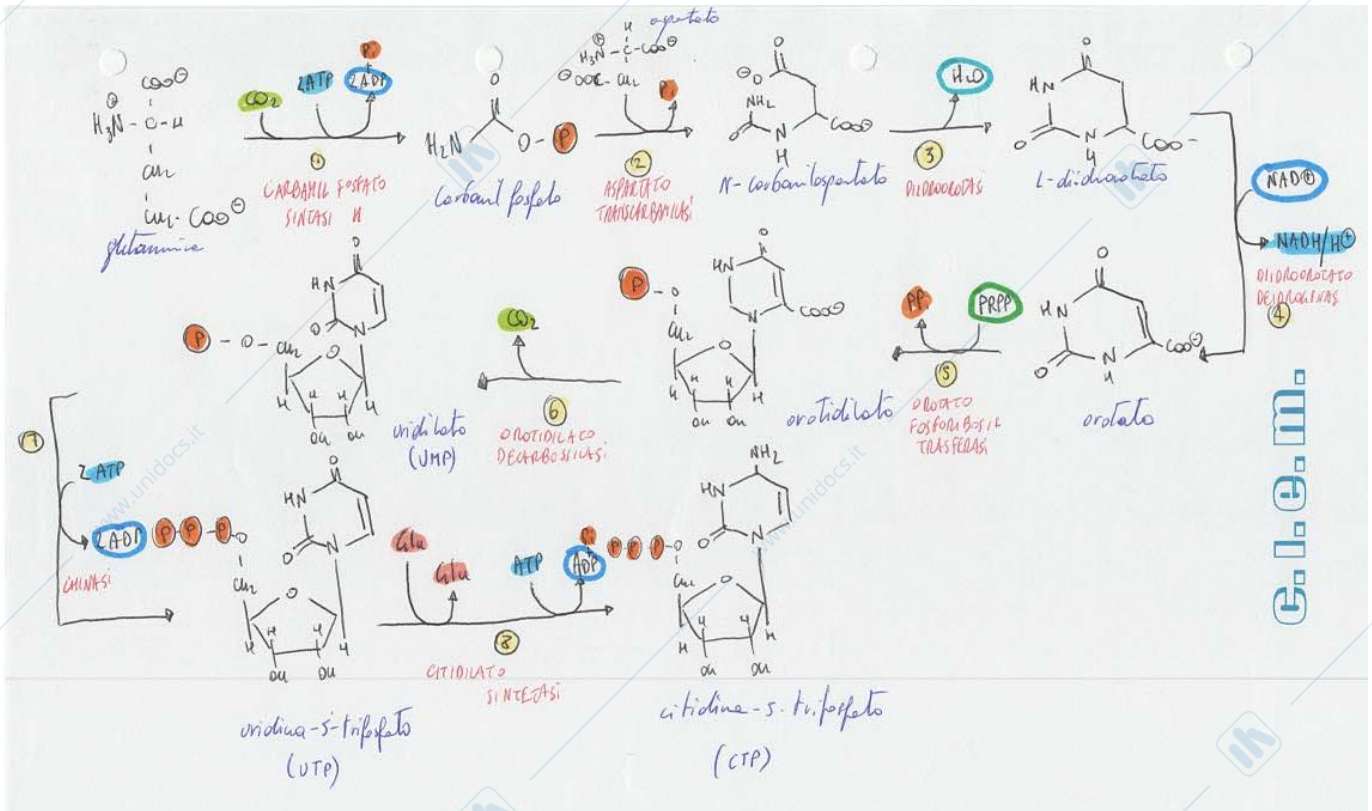 aspartato
COO⊖
H₃N⊕ - C - H
CH₂
CH₂ - COO⊖
glutammina
CO₂
2ATP
Pi
+
2ADP
1
CARBAMIL FOSFATO
SINTASI II
H₂N
O
O - P
Carbamil fosfato
H
H₃N⊕ - C - COO⊖
⊖OOC - CH₂
Pi
2
ASPARTATO
TRANSCARBAMILASI
O
⊖O
NH₂
O
N
H
COO⊖
N-carbamilaspartato
H₂O
3
DIIDROOROTASI
O
HN
O
N
H
COO-
L-diidroorotato
NAD⊕
NADH/H⊕
DIIDROOROTATO
DEIDROGENASI
4
O
HN
O
N
H
COO⊖
orotato
PRPP
PPi
5
OROTATO
FOSFORIBOSIL
TRASFERASI
O
HN
N
COO⊖
P - O
CH₂
O
H H H H
OH OH
orotidilato
CO₂
6
OROTIDILATO
DECARBOSSILASI
O
HN
O
N
P - O - CH₂
O
H H H H
OH OH
uridilato
(UMP)
7
2 ATP
2ADP
CHINASI
P-P-P-O
CH₂
O
HN
O
N
O
H H H H
OH OH
uridina-5'-trifosfato
(UTP)
Glu
Glu
ATP
Pi
+
ADP
8
CITIDILATO
SINTETASI
NH₂
HN
O
N
P-P-P-O
CH₂
O
H H H H
OH OH
citidina-5'-trifosfato
(CTP)
c.l.e.m.
www.unidocs.it
www.unidocs.it